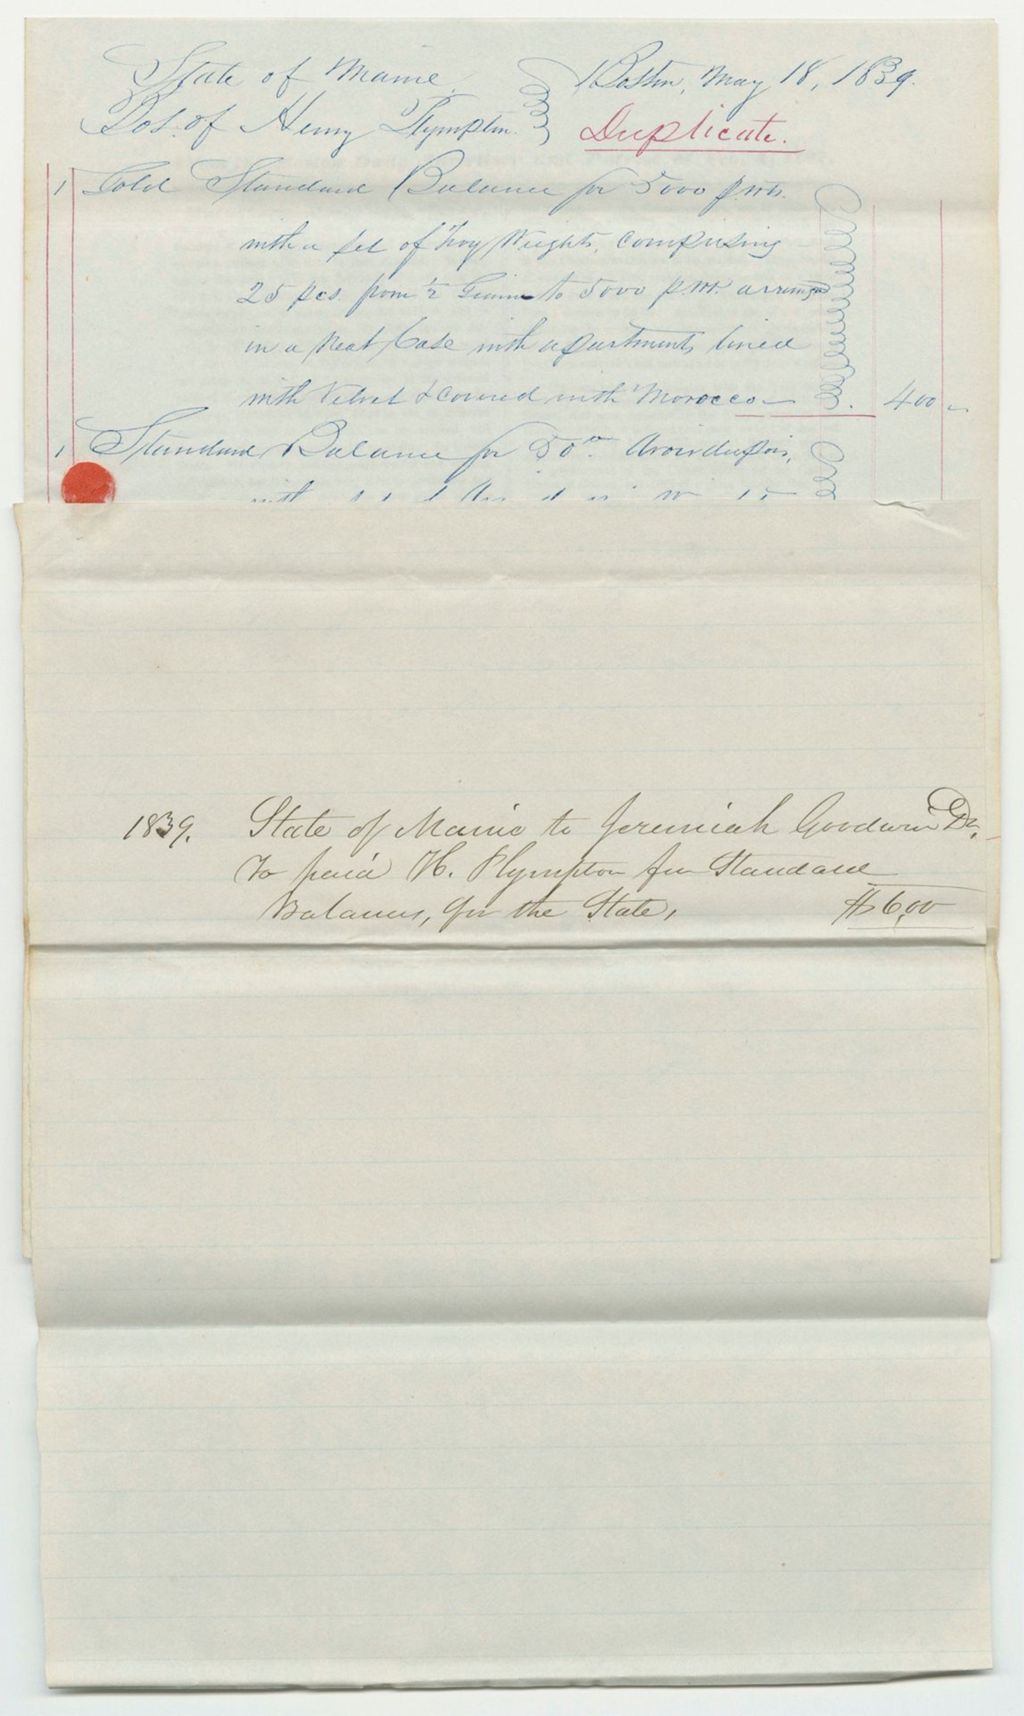 State of Maine Boston, May 18, 1839.
Bot. of Henry Plympton. Duplicate.
1 Gold Standard Balance for 5000 pwts.
with a set of Troy Weights, comprising
25 pcs. from 1/2 Grain to 5000 pwt. arranged
in a Neat Case with apartments lined
with Velvet & covered with Morocco 400
1 Standard Balance for 50 Avoirdupois,
with
1839. State of Maine to Jeremiah Goodwin Dr.
To paid H. Plympton for Standard
Balances, for the State, $600